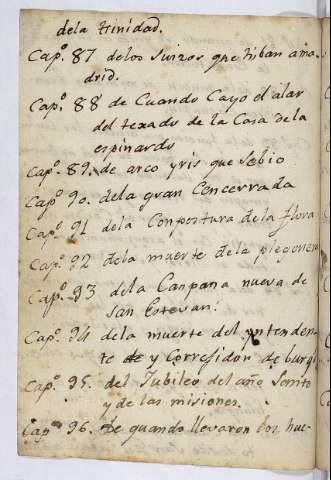 dela trinidad.
Capº. 87 delos suizos que hiban ama-
drid.
Capº. 88 de Cuando Cayo el alar
del texado de la Casa dela
espinardo
Capº 89. de arco yris que sebio
Capº 90. dela gran Concerrada
Capº 91 dela Conpostura dela flora
Capº. 92 dela muerte dela plegonera
Capº. 93 dela Canpana nueva de
san Estevan.
Capº. 94 dela muerte del yntenden-
te y Corregidor de burgs
Capº. 95. del Jubileo del año Santo
y de las misiones.
Capº 96. De quando llevaron los hue-